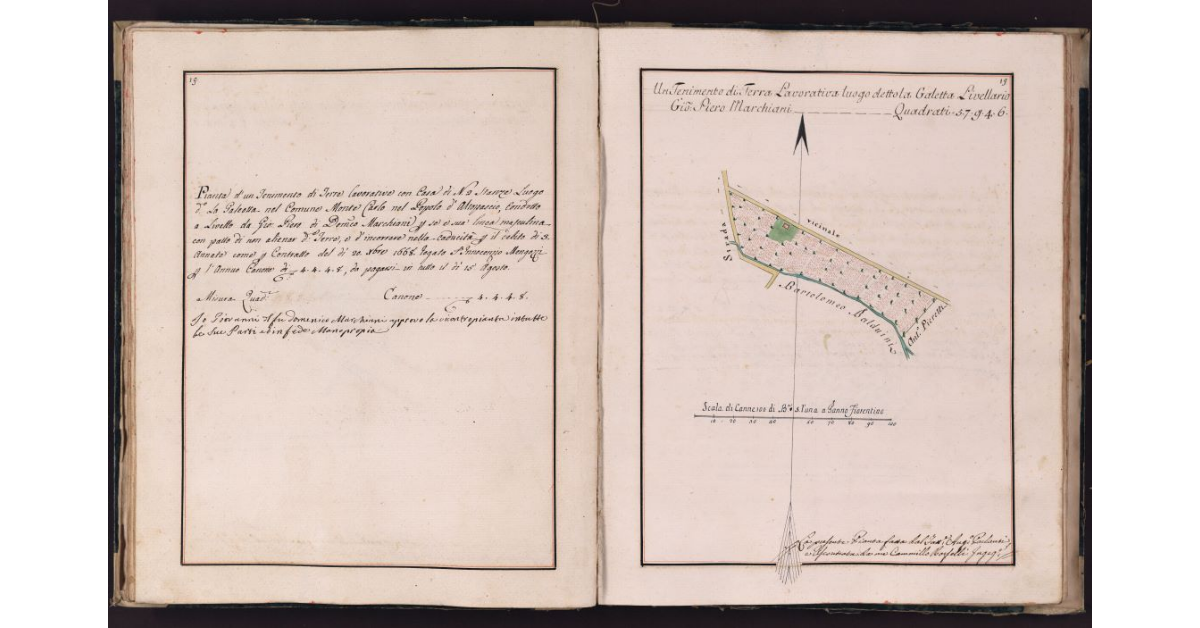 19
Pianta d'un Tenimento di Terre lavorative con Casa di N.º 2 Stanze Luogo
d.º La Galeetta nel Comune Monte Carlo nel Popolo d'Altopascio, Condotto
a Livello da Gio: Piero di Dom.co Marchiani p se e sua linea mascolina
con patto di non alienar d.e Terre, e d'incorrere nella caducità p il debito di 3.
Annate come p Contratto del di 20. Xbre 1668. Rogato S.r Innocenzio Mengazzi
p l'Annuo Canone di 4. 4. 4. 8, da pagarsi in tutto il di 15 Agosto.
a Misura Quad.ti Canone 4. 4. 4. 8.
Io Giovanni del fu domenico Marchiani approvo la pianta in tutte
le Sue Parti ed in fede Mano propia
19
Un Tenimento di Terra Lavorativa luogo detto la Galetta Livellario
Gio: Piero Marchiani Quadrati 57. 9. 4. 6.
Strada
vicinale
Bartolomeo Balduini
Ant.º Pieretti
Scala di Canne di B.a 5. l'una a Panno Fiorentino
10 20 30 40 60 70 80 90 100
La presente Pianta fatta dal
da me Cammillo Borselli Ingeg.e